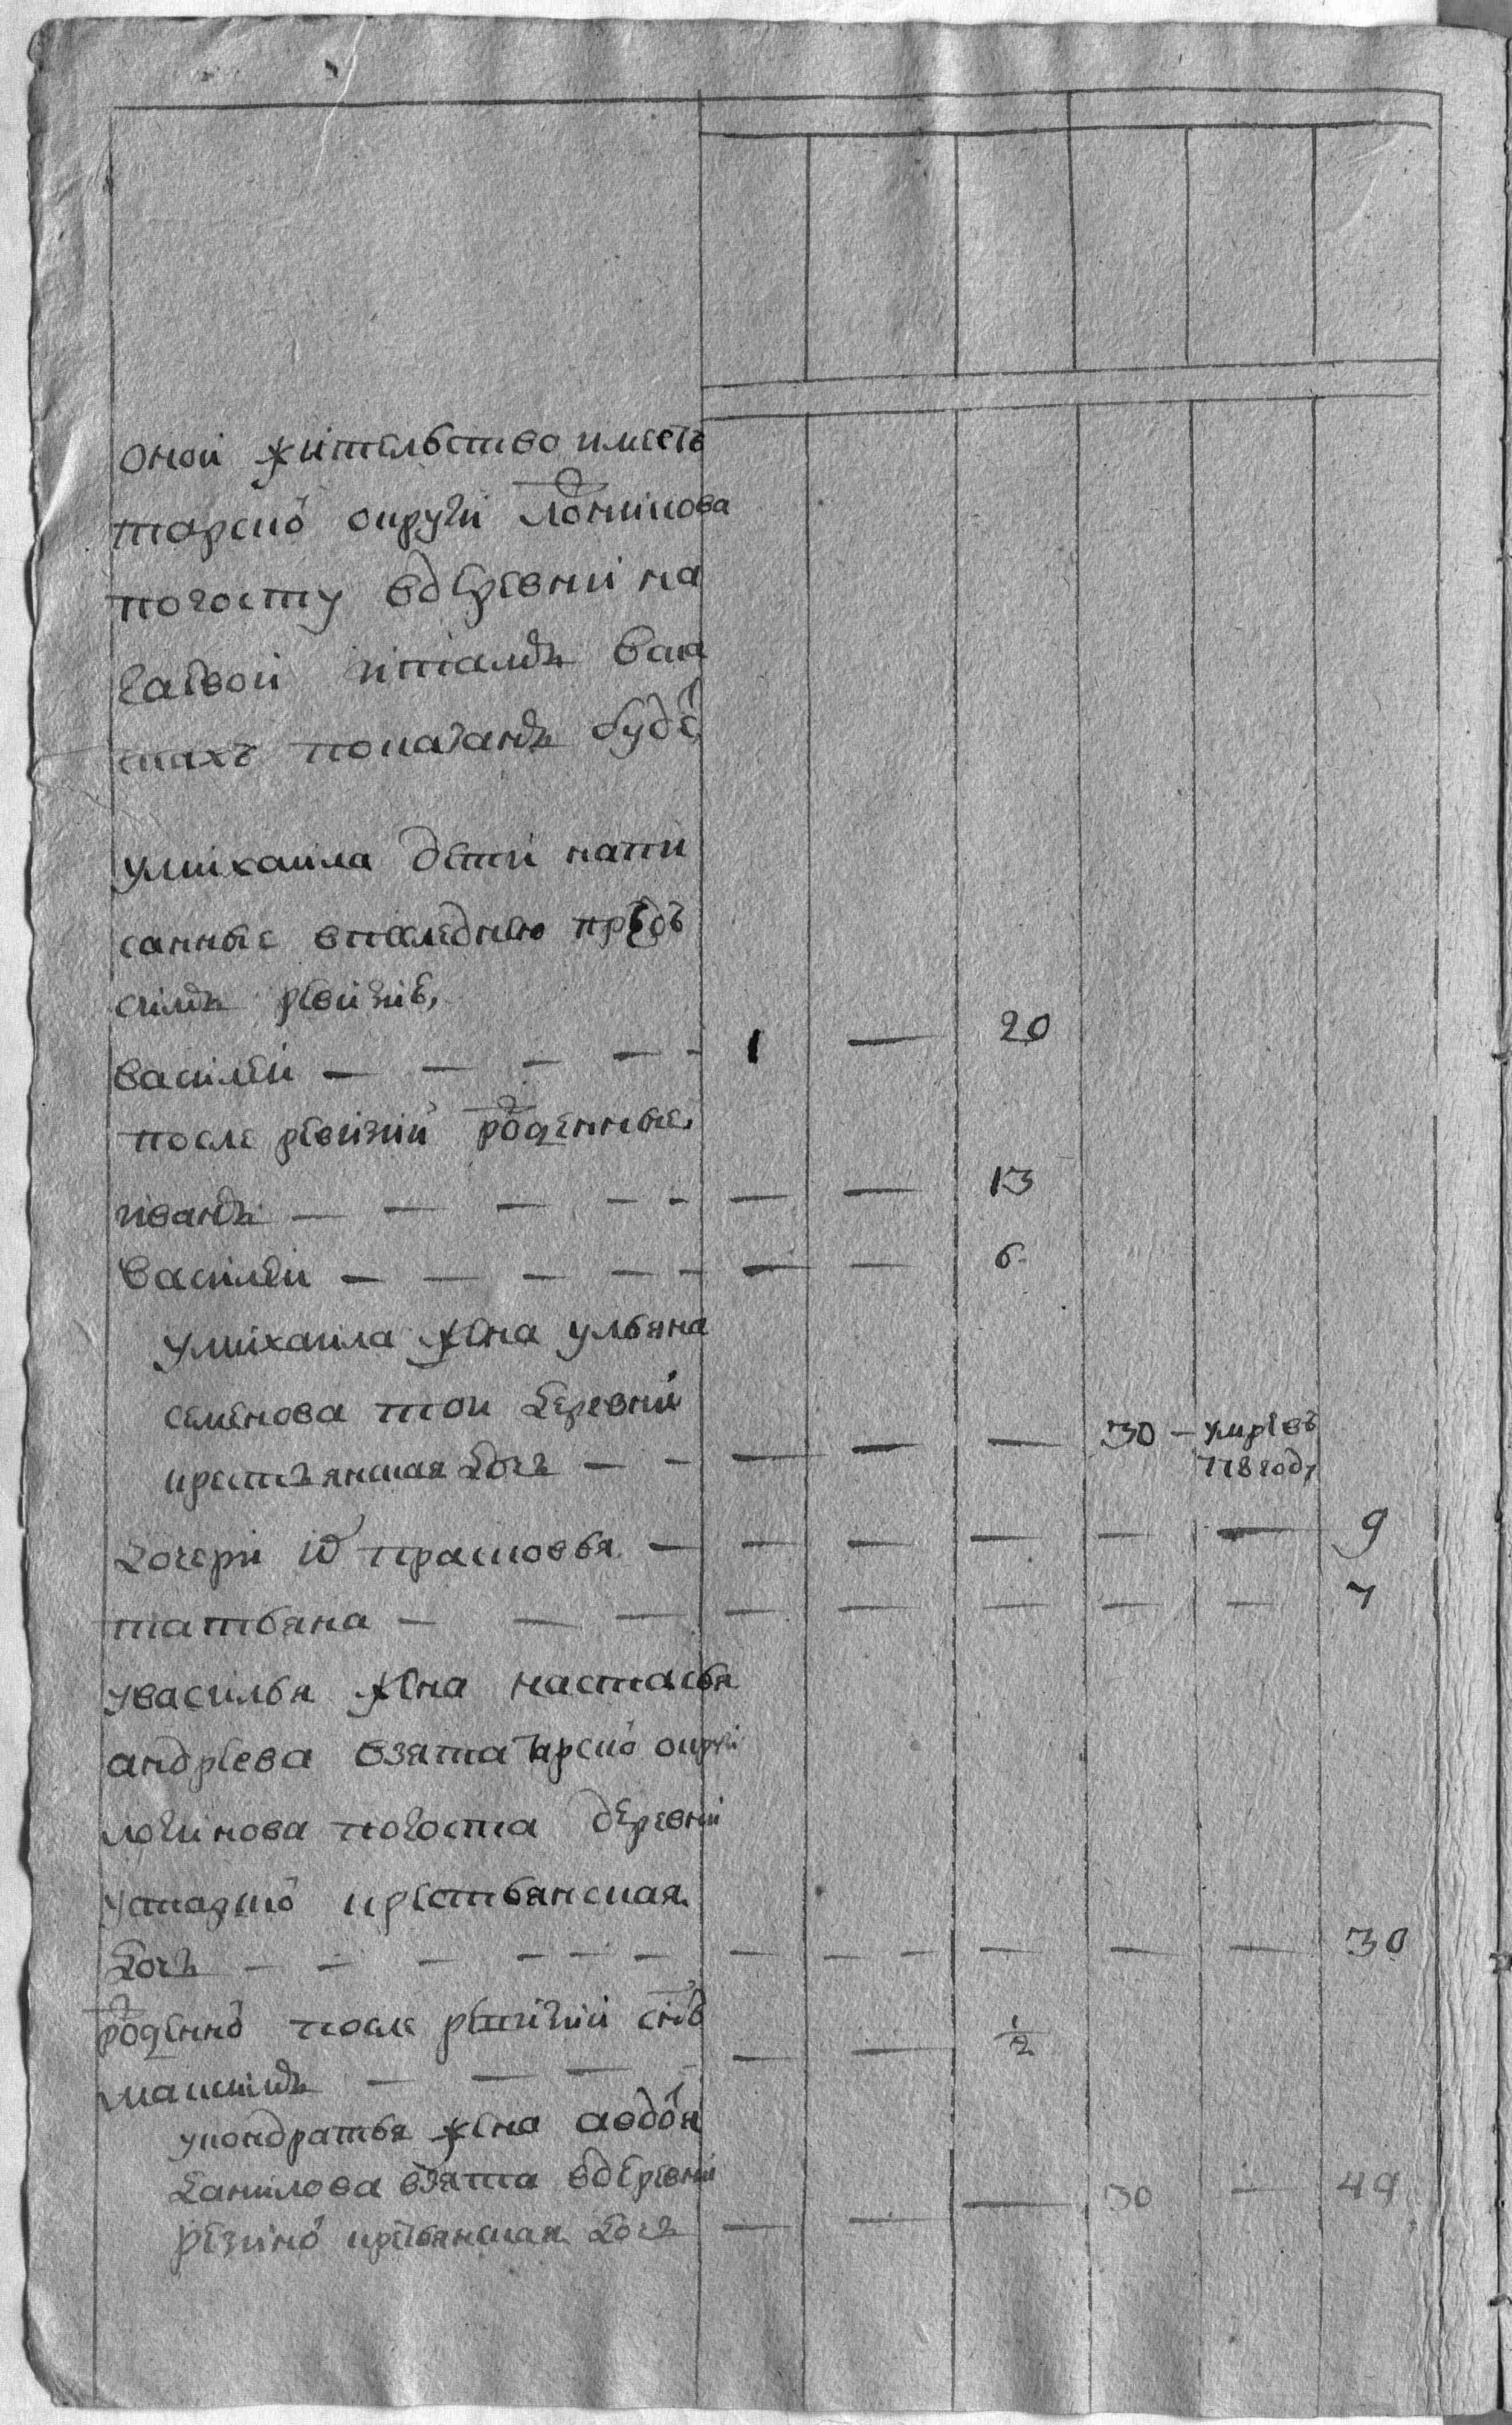 оной жительство имеетъ
тарско округи логинова
погосту вдеревни на
гаевой иtamъ вска
скахъ показанъ буде
умихаила дети напи
санные впоследнею предъ
симъ ревизiе,
василей — — — — — 1 — 20
после ревизiи рожденные
иванъ — — — — — — — 13
василей — — — — — — — 6
умихаила жена ульяна
семенова той деревни
крестьянская дочь — — — — — 30 — умре въ
778 году
дочери ихъ прасковья — — — — — — 9
татьяна — — — — — — — — 7
увасилья жена настасья
андреева взята тарско округи
логинова погоста деревни
крестьянская
дочь — — — — — — — — — — — — 30
рожденно после ревизiи сынъ
максимъ — — — — — — 1/2
укондратья жена авдотья
данилова взята вдеревни
резино крестьянская дочь — — — 30 — 49